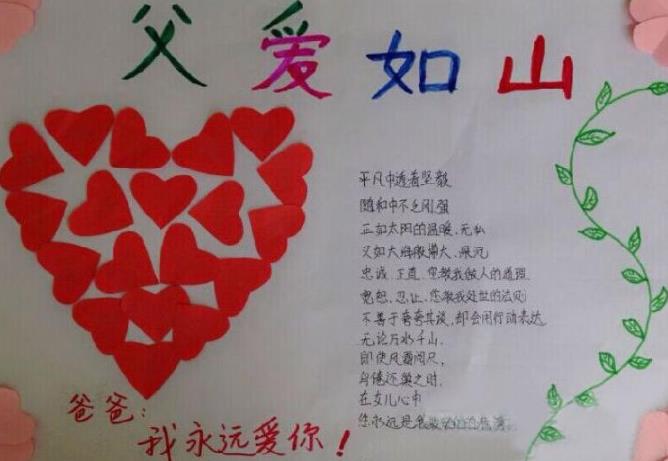 父爱如山
平凡中透着坚毅
随和中不乏刚强
正如太阳的温暖、无私
又如大海般博大、深沉
忠诚、正直、您教我做人的道理
宽恕、忍让、您教我处世的法则
不善于夸夸其谈,却会用行动表达
无论万水千山,
即使风霜
鸟倦还巢之时,
在女儿心中
您永远是我
爸爸:
我永远爱你!